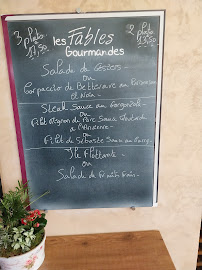 3 plats
17,50
2 plats
13,50
les Tables
Gourmandes
Salade de Gésiers
ou
Carpaccio de Betterave au Parmesan
et Noix
Steak Sauce au Gorgonzola
ou
Filet Mignon de Porc Sauce
à l'Ancienne
ou
Filet de Sébaste Sauce au Curry
Ile Flottante
ou
Salade de Fruits Frais